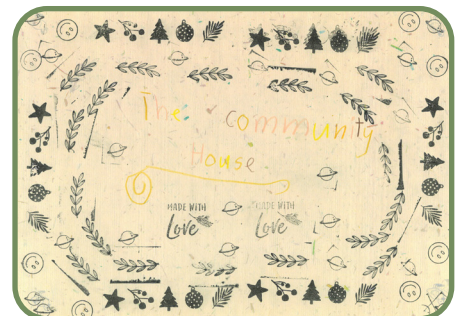 The community
House
MADE WITH MADE WITH
Love Love